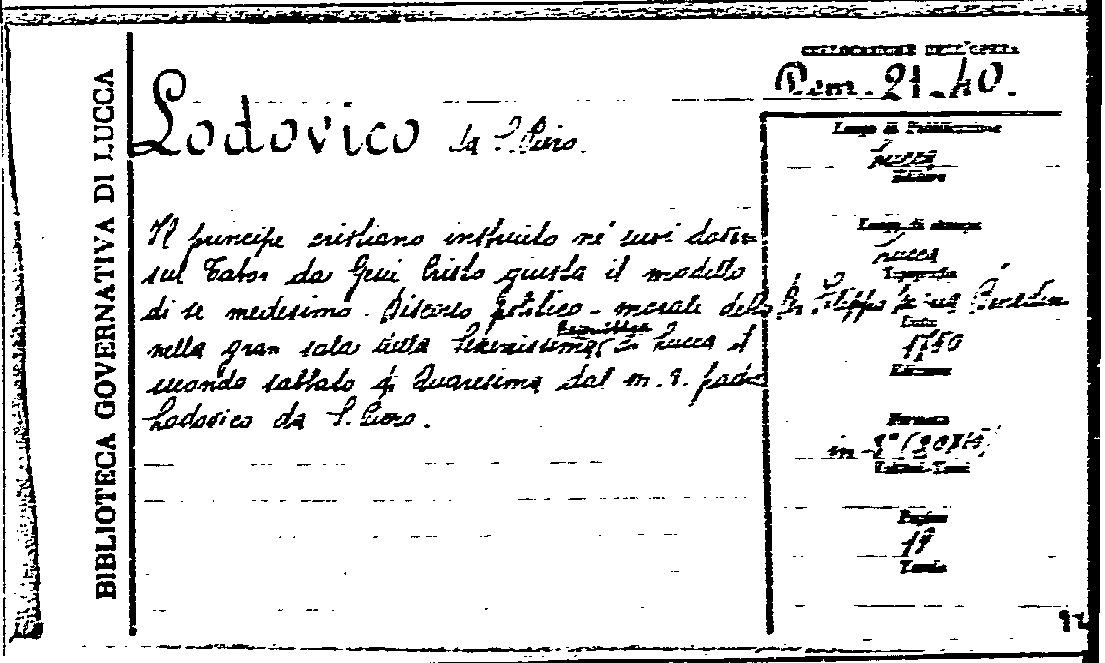 BIBLIOTECA GOVERNATIVA DI LUCCA
COLLOCAZIONE DELL'OPERA
21-40.
Lodovico da S. Piero.
Il principe cristiano instruito ne' suoi doveri
sul Tabor da Gesù Cristo giusta il modello
di se medesimo. Discorso politico-morale detto
nella gran sala della Serenissima Repubblica di Lucca il
secondo sabbato di Quaresima dal m. r. padre
Lodovico da S. Piero.
Luogo di Pubblicazione
Lucca
Editore
Luogo di stampa
Lucca
Tipografia
Filippo Maria Benedini
Data
Edizione
Formato
in-8°
Volumi-Tomi
Pagine
Tavole